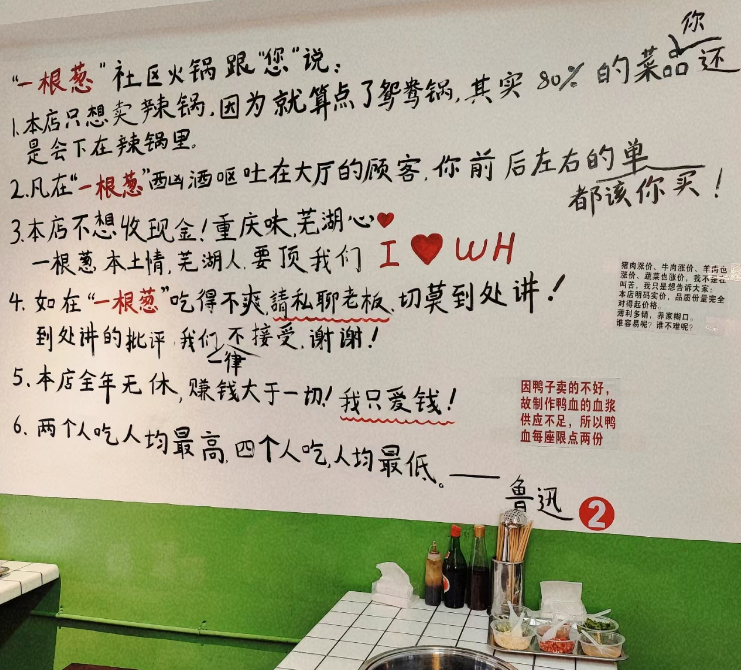 "一根葱"社区火锅跟"您"说:
你
1.本店只想卖辣锅,因为就算点了鸳鸯锅,其实80%的菜品还
是会下在辣锅里。
2.凡在"一根葱"西凶酒呕吐在大厅的顾客,你前后左右的单
都该你买!
3.本店不想收现金!重庆味,芜湖心❤
一根葱,本土情,芜湖人,要顶我们 I❤WH
4.如在"一根葱"吃得不爽,請私聊老板,切莫到处讲!
到处讲的批评,我们不接受,谢谢!
一律
5.本店全年无休,赚钱大于一切!我只爱钱!
6.两个人吃人均最高,四个人吃,人均最低。——
鲁迅 2
猪肉涨价、牛肉涨价、羊肉也
涨价、蔬菜也涨价,我不是在
叫苦,我只是想告诉大家:
本店明码实价,品质份量完全
对得起价格。
薄利多销,养家糊口。
谁容易呢?谁不难呢?
因鸭子卖的不好,
故制作鸭血的血浆
供应不足,所以鸭
血每座限点两份